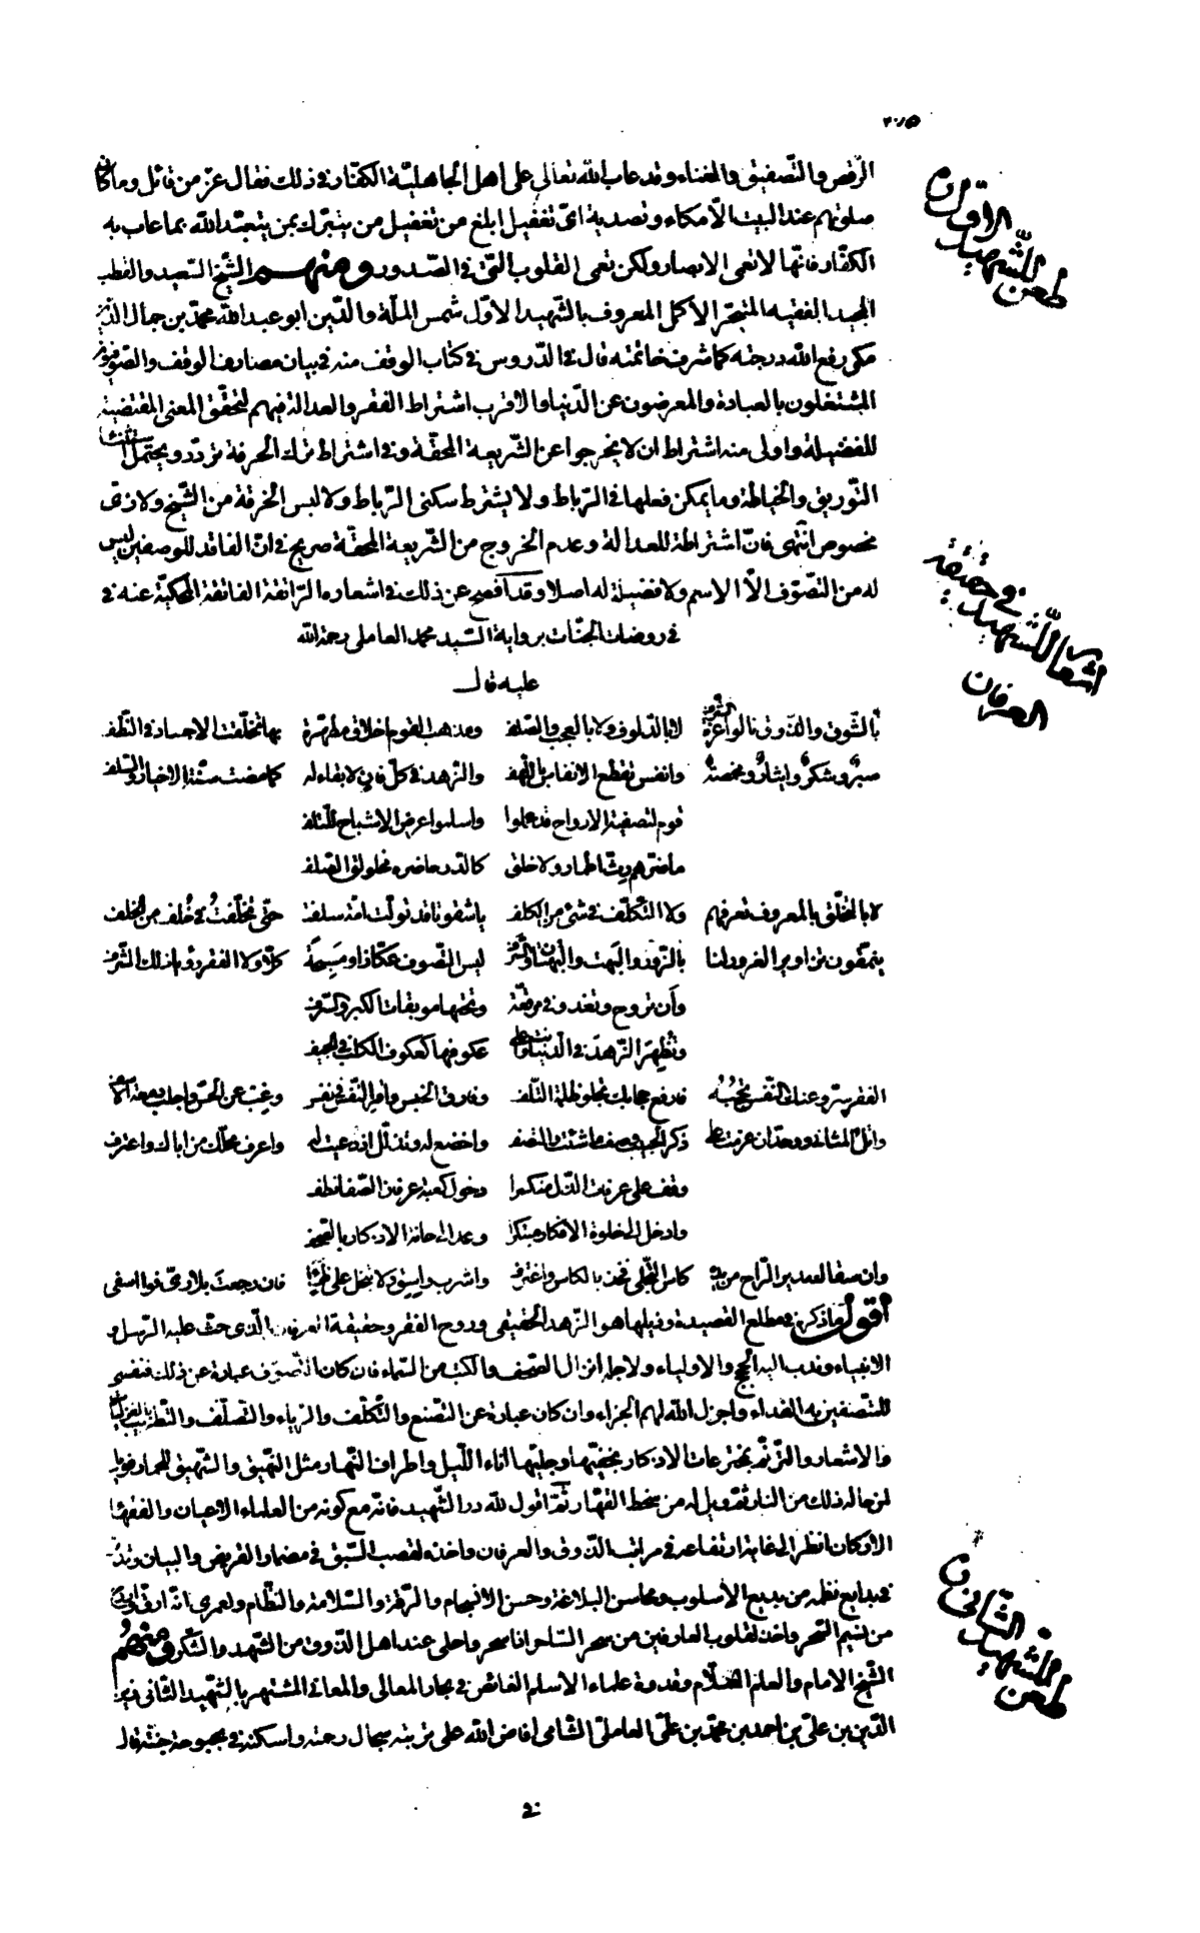 ٢٠٥
الرّقص والتّصفيق والغناء وقد عاب الله تعالى على اهل الجاهليّة الكفّار فى ذلك فقال عزّ من قائل وما كان
صلوتهم عند البيت الّا مكاء وتصدية اىّ تغفيل ابلغ من تغفيل من يتبرّك بمن يتعبّد الله بما عاب به
الكفّار فانّها لا تعمى الابصار ولكن تعمى القلوب الّتى فى الصّدور ومنهم الشّيخ السّعيد والقطب
المجيد الفقيه المتبحّر الاكمل المعروف بالشّهيد الاوّل شمس الملّة والدّين ابو عبد الله محمّد بن جمال الدّين
مكى رفع الله درجته كما شرف خاتمته قال فى الدّروس فى كتاب الوقف منه فى بيان مصارف الوقف والصّوفيّون
المشتغلون بالعبادة والمعرضون عن الدّنيا والاقرب اشتراط الفقر والعدالة فيهم لتحقّق المعنى المقتضى
للفضيلة واولى منه اشتراط ان لا يخرجوا عن الشّريعة المحقّة وفى اشتراط ترك الحرفة تردّد ويحتمل استثناء
التّوريق والخياطة وما يمكن فعلها فى الرّباط ولا يشترط سكنى الرّباط ولا لبس الخرقة من الشّيخ ولا زىّ
مخصوص انتهى فانّ اشتراطه للعدالة وعدم الخروج من الشّريعة المحقّة صريح فى انّ الفاقد للوصفين ليس
له من التّصوّف الّا الاسم ولا فضيلة له اصلا وقد افصح عن ذلك فى اشعاره الرّائقة الفائقة المحكيّة عنه فى
فى روضات الجنّات برواية السّيد محمد العاملى رحمة الله
عليه قال
بالشّوق والذّوق نالوا عزّة الشّرف لا بالدّلوف ولا بالعجب والصّلف ومذهب القوم اخلاق مطهّرة بها تخلّقت الاجساد فى النّطف
صبر وشكر وايثار ومخمصة وانفس تقطع الانفاس باللّهف والزّهد فى كلّ فان لا بقاء له كما مضت سنّة الاخيار والسّلف
قوم لتصفية الارواح قد عملوا واسلموا عرض الاشباح للتّلف
ما ضرّهم رثّ اطمار ولا خلق كالدّرّ حاضره مخلولق الصّدف
لا بالتخلّق بالمعروف تعرفهم ولا التّكلّف فى شىء من الكلف يا شقوتا قد تولّت امّة سلفت حتّى تخلّفتُ فى خُلف من الخلف
ينمّقون تزاوير الغرور لنا بالزّور والبهت والبهتان والسّرف ليس التّصوف عكّازا ومسبحة كلّا ولا الفقر رؤيا ذلك الشّرف
وأن تروح وتغدو فى مرقّعة وتحتها موبقات الكبر والسّرف
وتُظهرَ الزّهد فى الدّنيا وانت على عكوفها كعكوف الكلب فى الجيف
الفقر سرّ وعنك النّفس تحجبُه فارفع حجابك تجلو ظلمة التّلف وفارق الجنس واقر النّفس فى نفس وغِب عن الحسّ واجلب دمعة الاسف
واتل المثانى ووحّد ان عزمت على ذكر الحبيب وصف ما شئت واتّصف واخضع له وتذلّل اذ دعيت له واعرف محلّك من اباك واعترف
وقف على عرفات الذّلّ منكسرا وحول كعبة عرفان الصّفا فطف
وادخل الى خلوة الافكار مبتكرا وعد الى حانة الاذكار بالصّحف
وان سقاك مدير الرّاح من يده كاس التّجلّى فخذ بالكاس واغترف واشرب واسق ولا تبخل على ظمأ فان رجعت بلا رىّ فوا اسفى
اقول ما ذكره فى مطلع القصيدة وذيلها هو الزّهد الحقيقى وروح الفقر وحقيقة العرفان الّذى حثّ عليه الرّسل و
الانبياء وندب اليه الحجج والاولياء ولاجله انزال الصّحف والكتب من السّماء فان كان التّصوّف عبارة عن ذلك فنفسى
للمتّصفين به الفداء واجزل الله لهم الجزاء وان كان عبارة عن التّصنّع والتّكلّف والرّياء والتّصلّف والتّطريب بالغزليات
والاشعار والترنّم بمخترعات الاذكار بخفيّها وجليّها اناء اللّيل واطراف النّهار مثل النّهيق والشّهيق للحمار فويل
لمن حاله ذلك من النار ثمّ ويل له من سخط القهّار ثمّ اقول لله درّ الشّهيد فانّه مع كونه من العلماء الاعيان والفقهاء
الاركان انظر الى غاية ارتفاعه فى مراتب الذّوق والعرفان واخذه لقصب السّبق فى مضمار القريض والبيان
فى بدايع نظمه من بديع الأسلوب ومحاسن البلاغة وحسن الانسجام والرّقة والسّلامة والنّظام ولعمرى انّه ارقّ
من نسيم السّحر واخذ لقلوب العارفين من سحر السّاحر اذا سحر واحلى عند اهل الذّوق من الشّهد والسّكر ومنهم
الشّيخ الامام والعلم العلّام وقدوة علماء الاسلام الغائص فى بحار المعالى والمعانى المشتهر بالشّهيد الثّانى زين
الدّين بن علىّ بن احمد بن محمّد بن علىّ العاملىّ الشّامى افاض الله على تربته سجال رحمته واسكنه فى بحبوحة جنّته قال
فى
طعن الشّهيد الاوّل
اشعار الشّهيد فى حقيقة
العرفان
طعن الشّهيد الثّانى